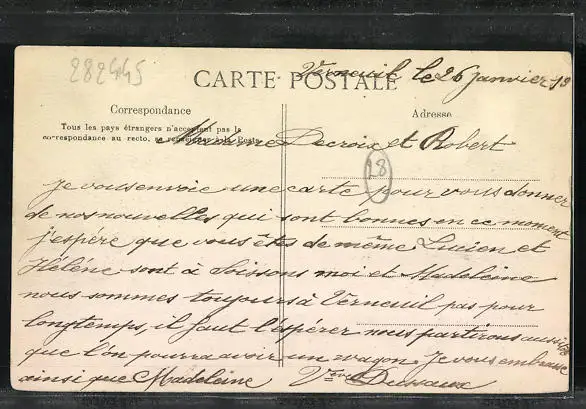 282445
Verneuil le 26 janvier 13
CARTE POSTALE
Correspondance
Adresse
Tous les pays étrangers n'acceptent pas la
correspondance au recto, se renseigner à la Poste
Madame Decroix et Robert
28
Je vous envoie une carte pour vous donner
de nos nouvelles qui sont bonnes en ce moment
j'espère que vous êtes de même Lucien et
Hélène sont à Soissons moi et Madeleine
nous sommes toujours à Verneuil pas pour
longtemps, il faut l'espérer nous partirons aussitôt
que l'on pourra avoir un wagon. Je vous embrasse
ainsi que Madeleine Vve